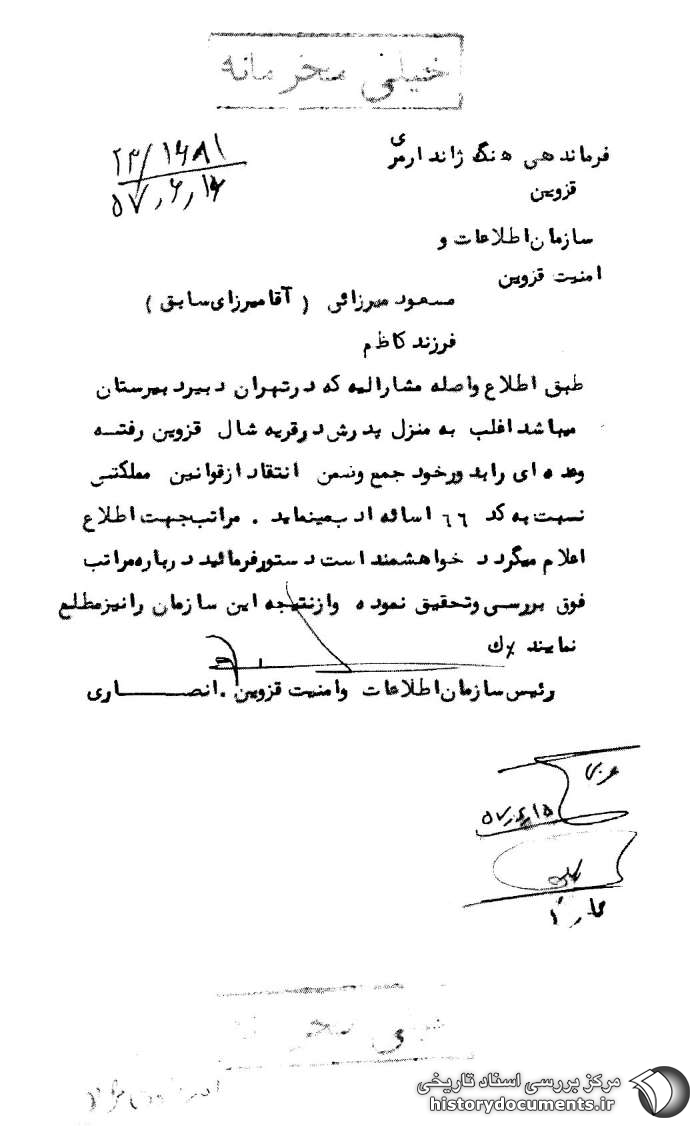 خیلی محرمانه
۲۳/۱۶۸۱
۵۷٫۶٫۱۶
فرماندهی هنگ ژاندارمری
قزوین
سازمان اطلاعات و
امنیت قزوین
مسعود میرزائی (آقامیرزای سابق)
فرزند کاظم
طبق اطلاع واصله مشارالیه که درتهران دبیر دبیرستان
میباشد اغلب به منزل پدرش درقریه شال قزوین رفته
وعده ای رابدورخود جمع وضمن انتقاد ازقوانین مملکتی
نسبت به کد ۶۶ اسائه ادب مینماید . مراتب جهت اطلاع
اعلام میگردد خواهشمند است دستورفرمائید درباره مراتب
فوق بررسی وتحقیق نموده وازنتیجه این سازمان رانیزمطلع
نمایند
رئیس سازمان اطلاعات وامنیت قزوین .انصاری
۱۵٫۶٫۵۷
خیلی محرمانه
مرکز بررسی اسناد تاریخی
historydocuments.ir